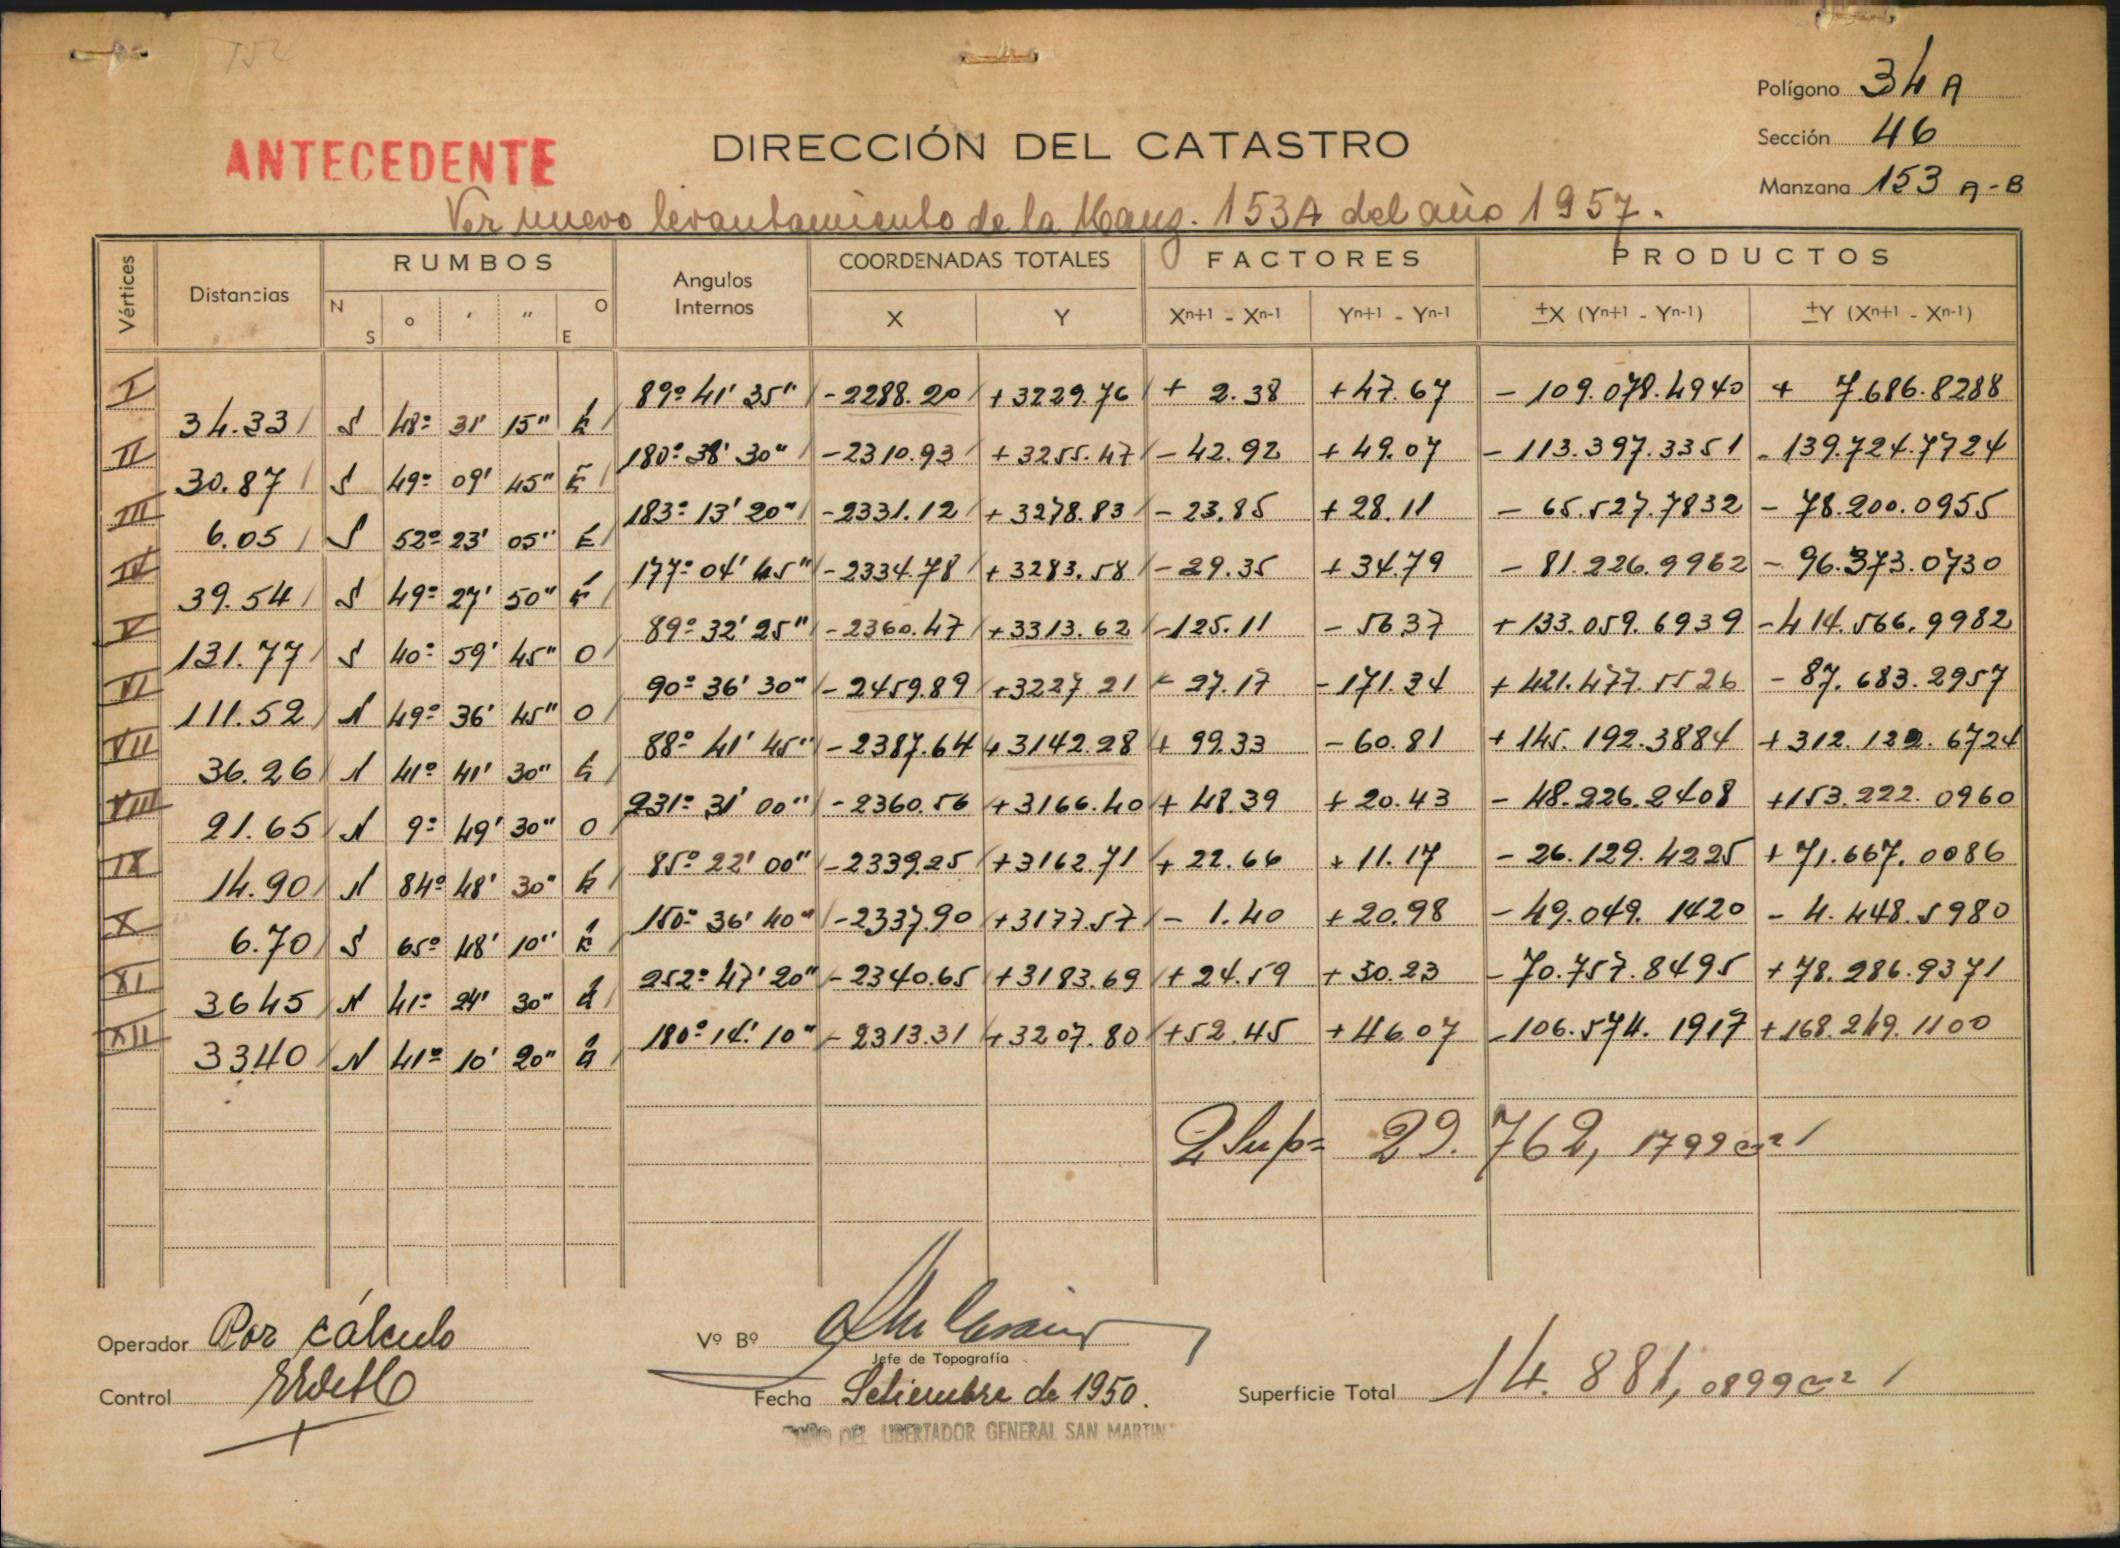 Polígono 34 A
Sección 46
Manzana 153 A-B
ANTECEDENTE
DIRECCIÓN DEL CATASTRO
Ver nuevo levantamiento de la Manz. 153A del año 1957.
Vértices Distancias RUMBOS Angulos Internos COORDENADAS TOTALES FACTORES PRODUCTOS
N S ° ′ ″ O E X Y Xⁿ⁺¹ - Xⁿ⁻¹ Yⁿ⁺¹ - Yⁿ⁻¹ ±X (Yⁿ⁺¹ - Yⁿ⁻¹) ±Y (Xⁿ⁺¹ - Xⁿ⁻¹)
I 89º 41' 35" -2288.20 +3229.76 + 2.38 +47.67 - 109.078.4940 + 7.686.8288
34.33 S 48º 31' 15" E
II 180º 38' 30" -2310.93 +3255.47 - 42.92 +49.07 - 113.397.3351 - 139.724.7724
30.87 S 49º 09' 45" E
III 183º 13' 20" -2331.12 +3278.83 - 23.85 +28.11 - 65.527.7832 - 78.200.0955
6.05 S 52º 23' 05" E
IV 177º 04' 45" -2334.78 +3283.58 - 29.35 +34.79 - 81.226.9962 - 96.373.0730
39.54 S 49º 27' 50" E
V 89º 32' 25" -2360.47 +3313.62 -125.11 - 5637 +133.059.6939 -414.566.9982
131.77 S 40º 59' 45" O
VI 90º 36' 30" -2459.89 +3227 21 - 27.17 -171.34 +421.477.5526 - 87.683.2957
111.52 N 49º 36' 45" O
VII 88º 41' 45" -2387.64 +3142.28 + 99.33 -60.81 +145.192.3884 +312.122.6724
36.26 N 41º 41' 30" E
VIII 231º 31' 00" -2360.56 +3166.40 + 48.39 +20.43 - 48.226.2408 +153.222.0960
21.65 N 9º 49' 30" O
IX 85º 22' 00" -2339.25 +3162.71 + 22.66 +11.17 - 26.129.4225 +71.667.0086
14.90 N 84º 48' 30" E
X 150º 36' 40" -2337.90 +3177.57 - 1.40 +20.98 -49.049.1420 - 4.448.5980
6.70 S 65º 48' 10" E
XI 252º 47' 20" -2340.65 +3183.69 +24.59 +30.23 -70.757.8495 +78.286.9371
3645 N 41º 24' 30" E
XII 180º 14' 10" -2313.31 +3207.80 +52.45 +4607 -106.574.1917 +168.249.1100
3340 N 41º 10' 20" E
2 Sup= 29.762,1799 m²
Operador Por cálculo
Vº Bº
Jefe de Topografía
Control
Fecha Setiembre de 1950.
Superficie Total 14.881,0899 m²
"AÑO DEL LIBERTADOR GENERAL SAN MARTIN"